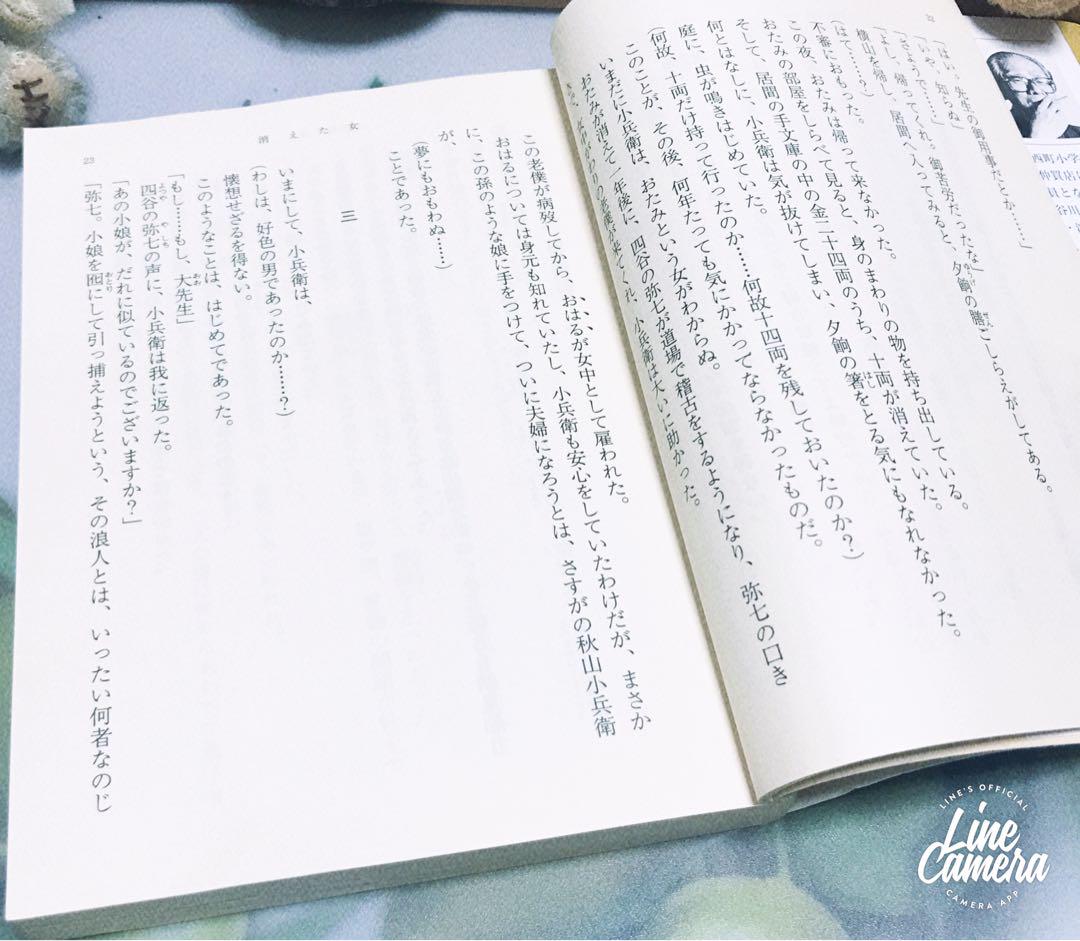 22
「はい。先生の御用事だとか……」
「いや、知らぬ」
「さようで……」
「よし、帰ってくれ。御苦労だったな」
横山を帰し、居間へ入ってみると、夕餉の膳ごしらえがしてある。
(はて……?)
不審におもった。
この夜、おたみは帰って来なかった。
おたみの部屋をしらべて見ると、身のまわりの物を持ち出している。
そして、居間の手文庫の中の金二十四両のうち、十両が消えていた。
何とはなしに、小兵衛は気が抜けてしまい、夕餉の箸をとる気にもなれなかった。
庭に、虫が鳴きはじめていた。
(何故、十両だけ持って行ったのか……何故十四両を残しておいたのか?)
このことが、その後、何年たっても気にかかってならなかったものだ。
いまだに小兵衛は、おたみという女がわからぬ。
おたみが消えて一年後に、四谷の弥七が道場で稽古をするようになり、弥七の口き
小兵衛は大いに助かった。
この老僕が病歿してから、おはるが女中として雇われた。
おはるについては身元も知れていたし、小兵衛も安心をしていたわけだが、まさか
に、この孫のような娘に手をつけて、ついに夫婦になろうとは、さすがの秋山小兵衛
が、
(夢にもおもわぬ……)
ことであった。
三
いまにして、小兵衛は、
(わしは、好色の男であったのか……?)
懐想せざるを得ない。
このようなことは、はじめてであった。
「もし……もし、大先生」
四谷の弥七の声に、小兵衛は我に返った。
「あの小娘が、だれに似ているのでございますか?」
「弥七。小娘を囮にして引っ捕えようという、その浪人とは、いったい何者なのじ
消えた女
23
LINE'S OFFICIAL
Line
Camera
CAMERA APP